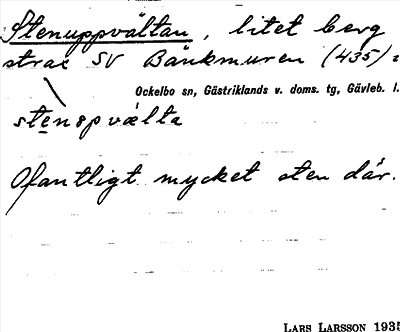 Stenuppvältan, litet berg
strax SV Bänkmuren (435):
Ockelbo sn, Gästriklands v. doms. tg, Gävleb. l.
stenspvälta
Ofantligt mycket sten där.
LARS LARSSON 1935